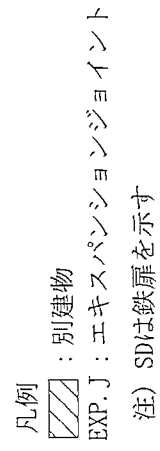 凡例
：別建物
EXP.J：エキスパンションジョイント
注）SDは鉄扉を示す